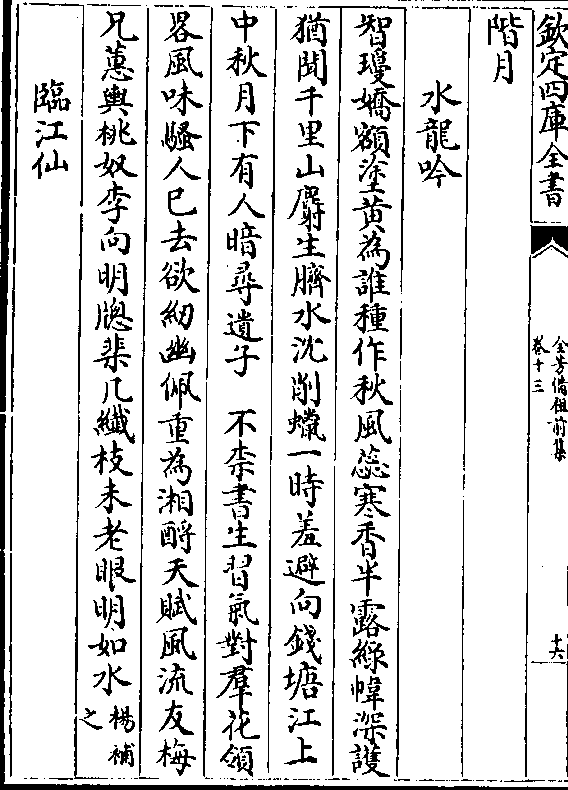 欽定四庫全書
全芳備祖前集
卷十三
十六
階月
水龍吟
智瓊嬌額塗黄為誰種作秋風蕊寒香半露緑幃深護
猶聞千里山麝生臍水沈削蠟一時羞避向錢塘江上
中秋月下有人暗尋遺子　不柰書生習氣對羣花領
畧風味騷人已去欲紉幽佩重為湘酹天賦風流友梅
兄蕙輿桃奴李向明牎棐几纖枝未老眼明如水楊補
之
臨江仙